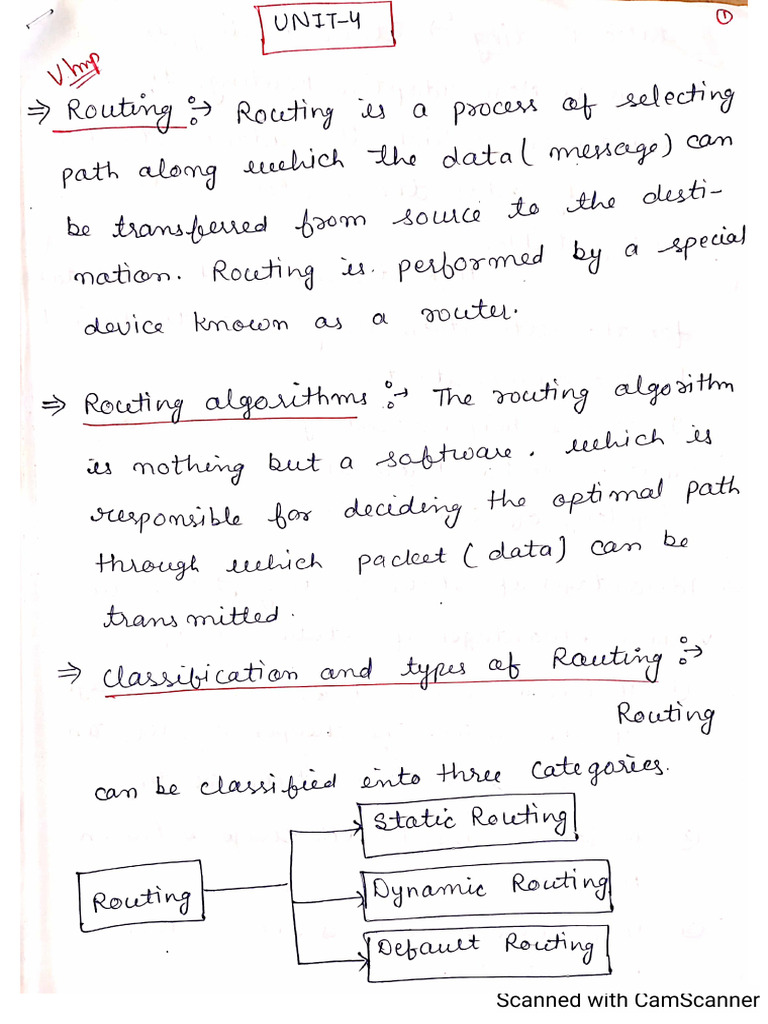 UNIT-4
①
V Imp
⇒ Routing :→ Routing is a process of selecting
path along which the data (message) can
be transferred from source to the desti-
nation. Routing is performed by a special
device known as a router.
⇒ Routing algorithms :→ The routing algorithm
is nothing but a software. which is
responsible for deciding the optimal path
through which packet (data) can be
transmitted.
⇒ Classification and types of Routing :→
Routing
can be classified into three categories.
Static Routing
Routing
Dynamic Routing
Default Routing
Scanned with CamScanner